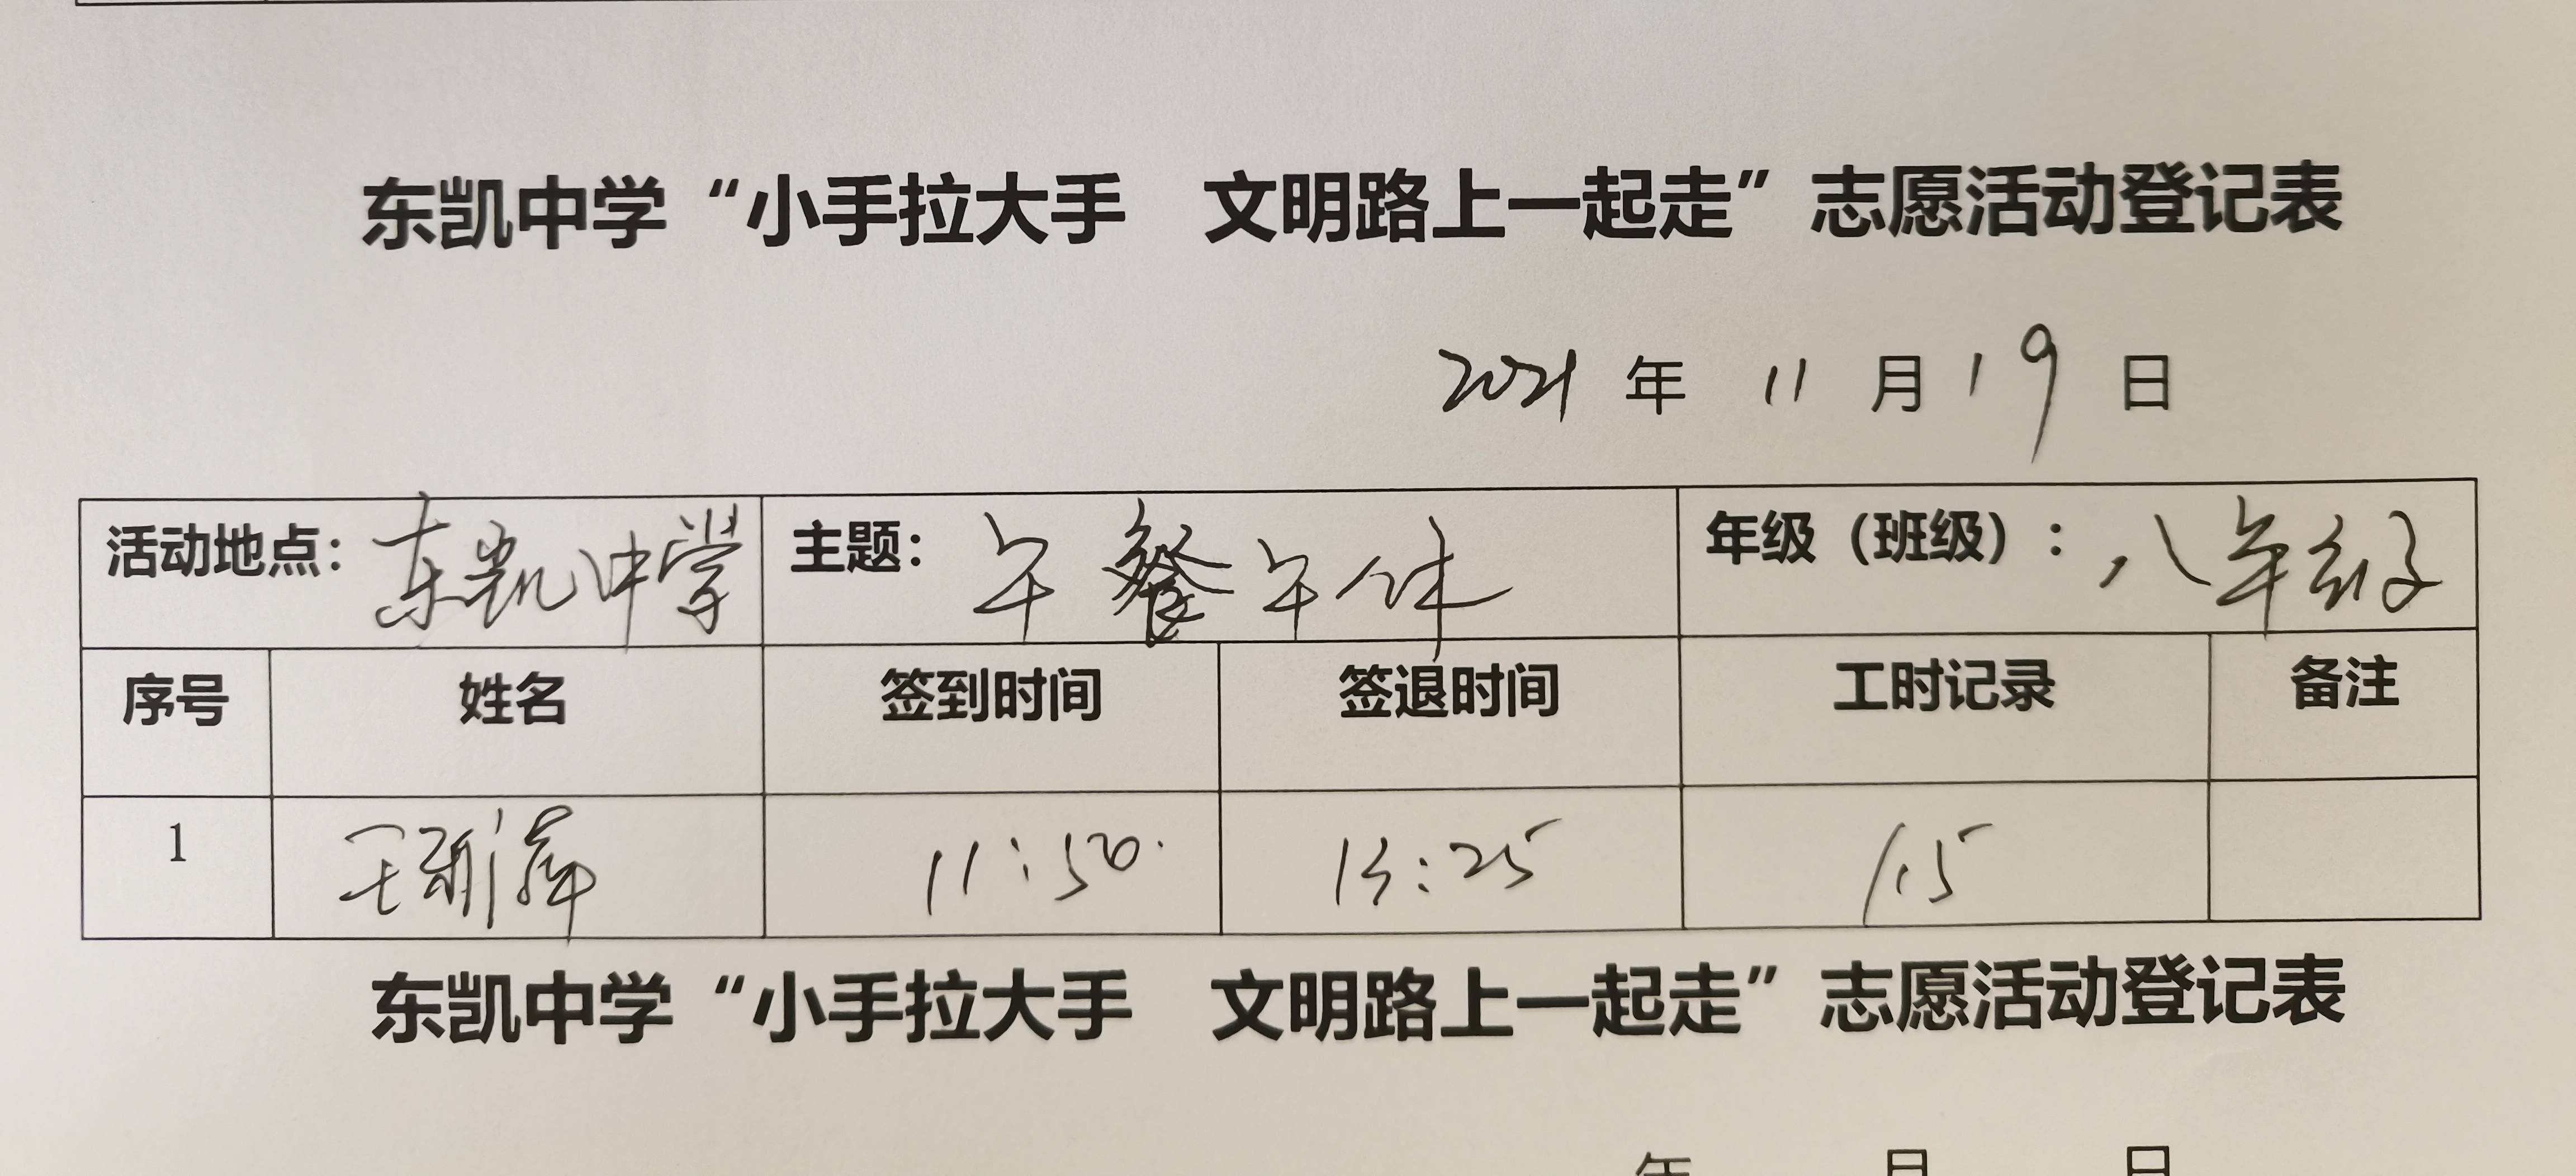 东凯中学“小手拉大手 文明路上一起走”志愿活动登记表
2021 年 11 月 19 日
活动地点：东凯中学 主题：午餐午休 年级（班级）：八年级
序号 姓名 签到时间 签退时间 工时记录 备注
1 王 萍 11:50 13:25 1.5
东凯中学“小手拉大手 文明路上一起走”志愿活动登记表
年 月 日